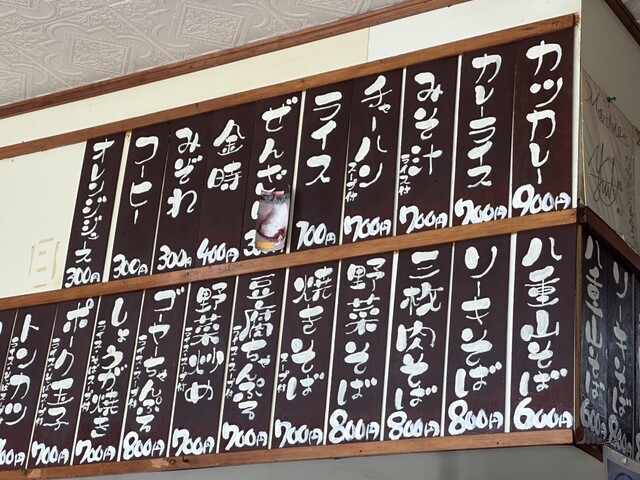 カツカレー 900円
カレーライス 700円
みそ汁 ライス付 700円
チャーハン スープ付 700円
ライス 100円
ぜんざい
金時 400円
みぞれ 300円
コーヒー 300円
オレンジジュース 300円
八重山そば 600円
ソーキそば 800円
三枚肉そば 800円
野菜そば 800円
焼きそば スープ付 700円
豆腐ちゃんぷる ライス・スープ付 700円
野菜炒め ライス・スープ付 700円
ゴーヤちゃんぷる ライス・スープ付 800円
しょうが焼き ライス・スープ付 700円
ポーク玉子 ライス・スープ付 700円
トンカツ ライス・スープ付